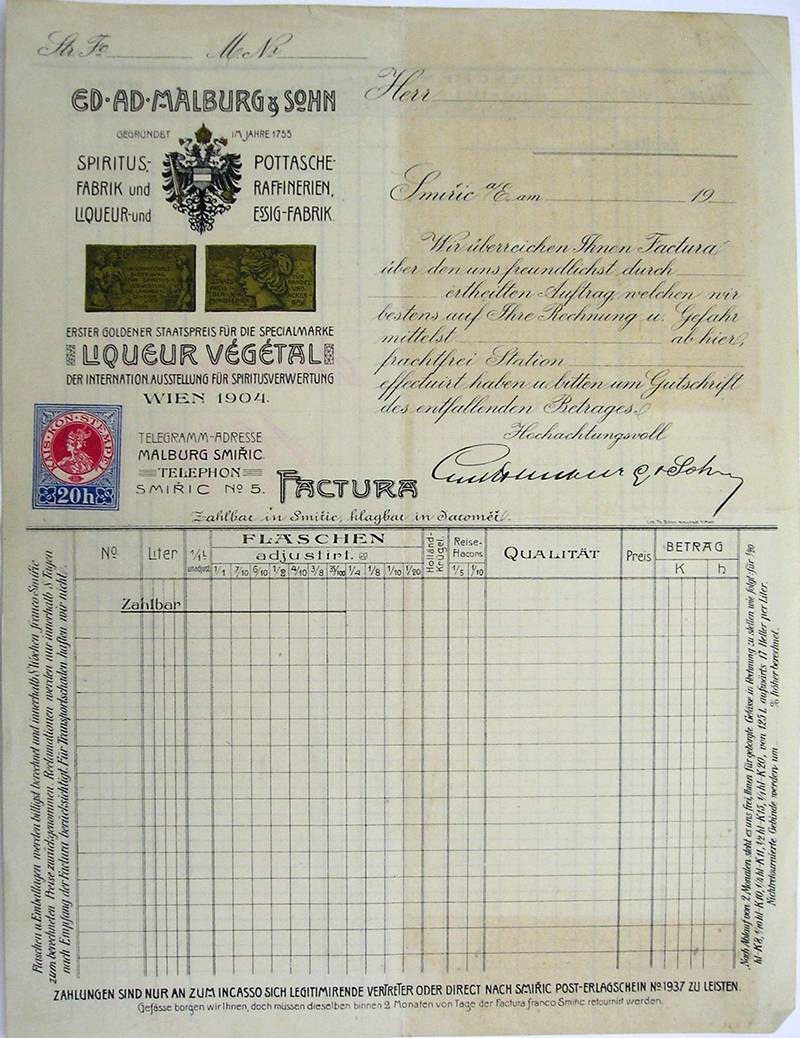 Str. Fo
M. No.
ED·AD·MALBURG & SOHN
GEGRÜNDET IM JAHRE 1755
SPIRITUS-
FABRIK und
LIQUEUR-und
POTTASCHE-
RAFFINERIEN,
ESSIG-FABRIK.
ERSTER GOLDENER STAATSPREIS FÜR DIE SPECIALMARKE
LIQUEUR VÉGÉTAL
DER INTERNATION. AUSSTELLUNG FÜR SPIRITUSVERWERTUNG
WIEN 1904.
KAIS·KÖN·STEMPEL
20h
TELEGRAMM-ADRESSE
MALBURG SMIŘIC.
TELEPHON
SMIŘIC No 5.
FACTURA
Herr
Smiřic a/E. am 19
Wir überreichen Ihnen Factura
über den uns freundlichst durch
ertheilten Auftrag, welchen wir
bestens auf Ihre Rechnung u. Gefahr
mittelst ab hier,
frachtfrei Station
effectuirt haben u. bitten um Gutschrift
des entfallenden Betrages.
Hochachtungsvoll
Zahlbar in Smiřic, klagbar in Jaroměř.
No.
Liter
1/1 L
unadjust
FLASCHEN
adjustirt.
1/1 7/10 6/10 1/2 4/10 3/8 35/100 1/4 1/8 1/10 1/20
Holländ.
Krügel.
Reise-
Flacons
1/5 1/10
QUALITÄT
Preis
BETRAG
K h
Zahlbar
Flaschen u. Emballagen werden billigst berechnet und innerhalb 8 Wochen franco Smiřic
zum berechneten Preise zurückgenommen. Reclamationen werden nur innerhalb 8 Tagen
nach Empfang der Factura berücksichtigt. Für Transportschaden haften wir nicht.
Nach Ablauf von 2 Monaten steht es uns frei, Ihnen für geborgte Gefässe in Rechnung zu stellen wie folgt: für 1/20
hl-K8, 1/10 hl-K10, 1/4 hl-K11, 1/2 hl-K15, 1/1 hl-K20, von 125 l. aufwärts 17 Heller per Liter.
Nichtretournierte Gebinde werden um % höher berechnet.
ZAHLUNGEN SIND NUR AN ZUM INCASSO SICH LEGITIMIRENDE VERTRETER ODER DIRECT NACH SMIŘIC POST-ERLAGSCHEIN No 1937 ZU LEISTEN.
Gefässe borgen wir Ihnen, doch müssen dieselben binnen 2 Monaten von Tage der Factura franco Smiřic retournirt werden.